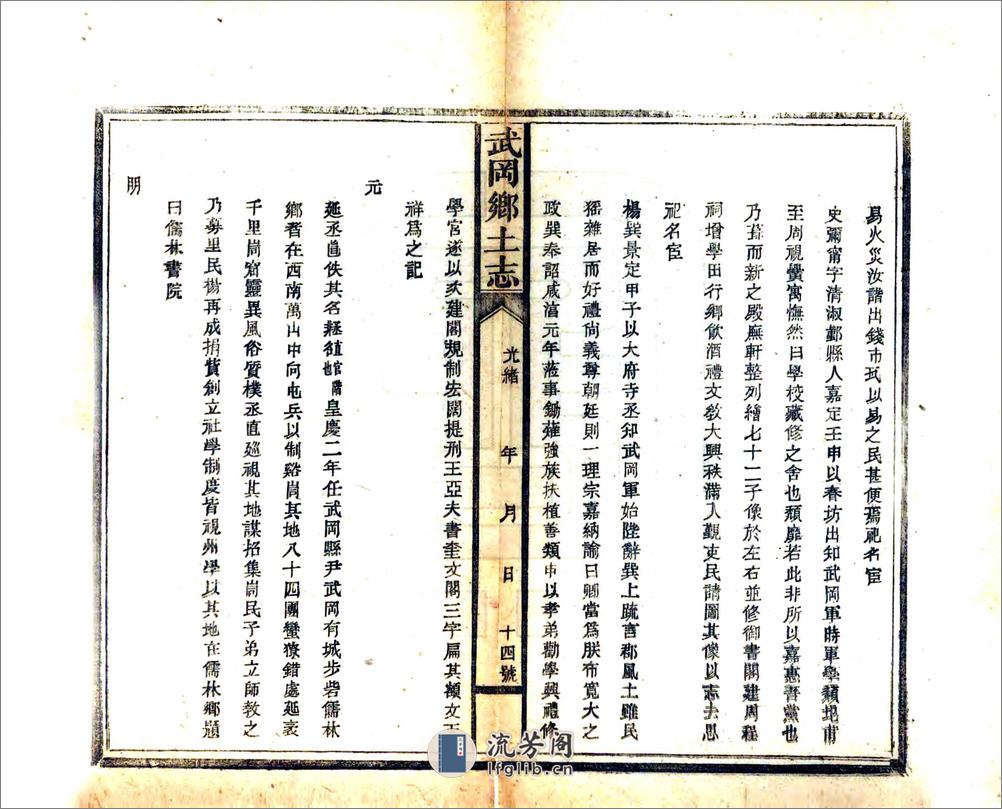 易火災汝諧出錢市瓦以易之民甚便焉祀名宦
史彌甯字清淑鄞縣人嘉定壬申以春坊出知武岡軍時軍學頹圮甫
至周視黌寓憮然曰學校藏修之舍也頹靡若此非所以嘉惠吾黨也
乃葺而新之殿廡軒整列繪七十二子像於左右並修御書閣建周程
祠增學田行鄉飲酒禮文教大興秩滿入觀吏民請圖其像以志去思
祀名宦
楊巽景定甲子以大府寺丞知武岡軍始陸辭巽上疏言郡風土雖民
猺雜居而好禮尚義尊朝廷則一理宗嘉納諭曰卿當爲朕布寬大之
政巽奉詔咸淳元年蒞事鋤薙強族扶植善類申以孝弟勸學興禮修
武岡鄉土志
光緒 年 月 日 十四號
學宮遂以次建閣規制宏闊提刑王亞夫書奎文閣三字扁其額文天
祥爲之記
元
延丞直佚其名經歷官階也皇慶二年任武岡縣尹武岡有城步砦儒林
鄉者在西南萬山中向屯兵以制谿峝其地八十四團蠻獠錯處延袤
千里峝窟靈異風俗質樸丞直廵視其地謀招集峝民子弟立師教之
乃募里民楊再成捐貲創立社學制度皆視州學以其地在儒林鄉題
曰儒林書院
明
流芳阁
lfglib.cn